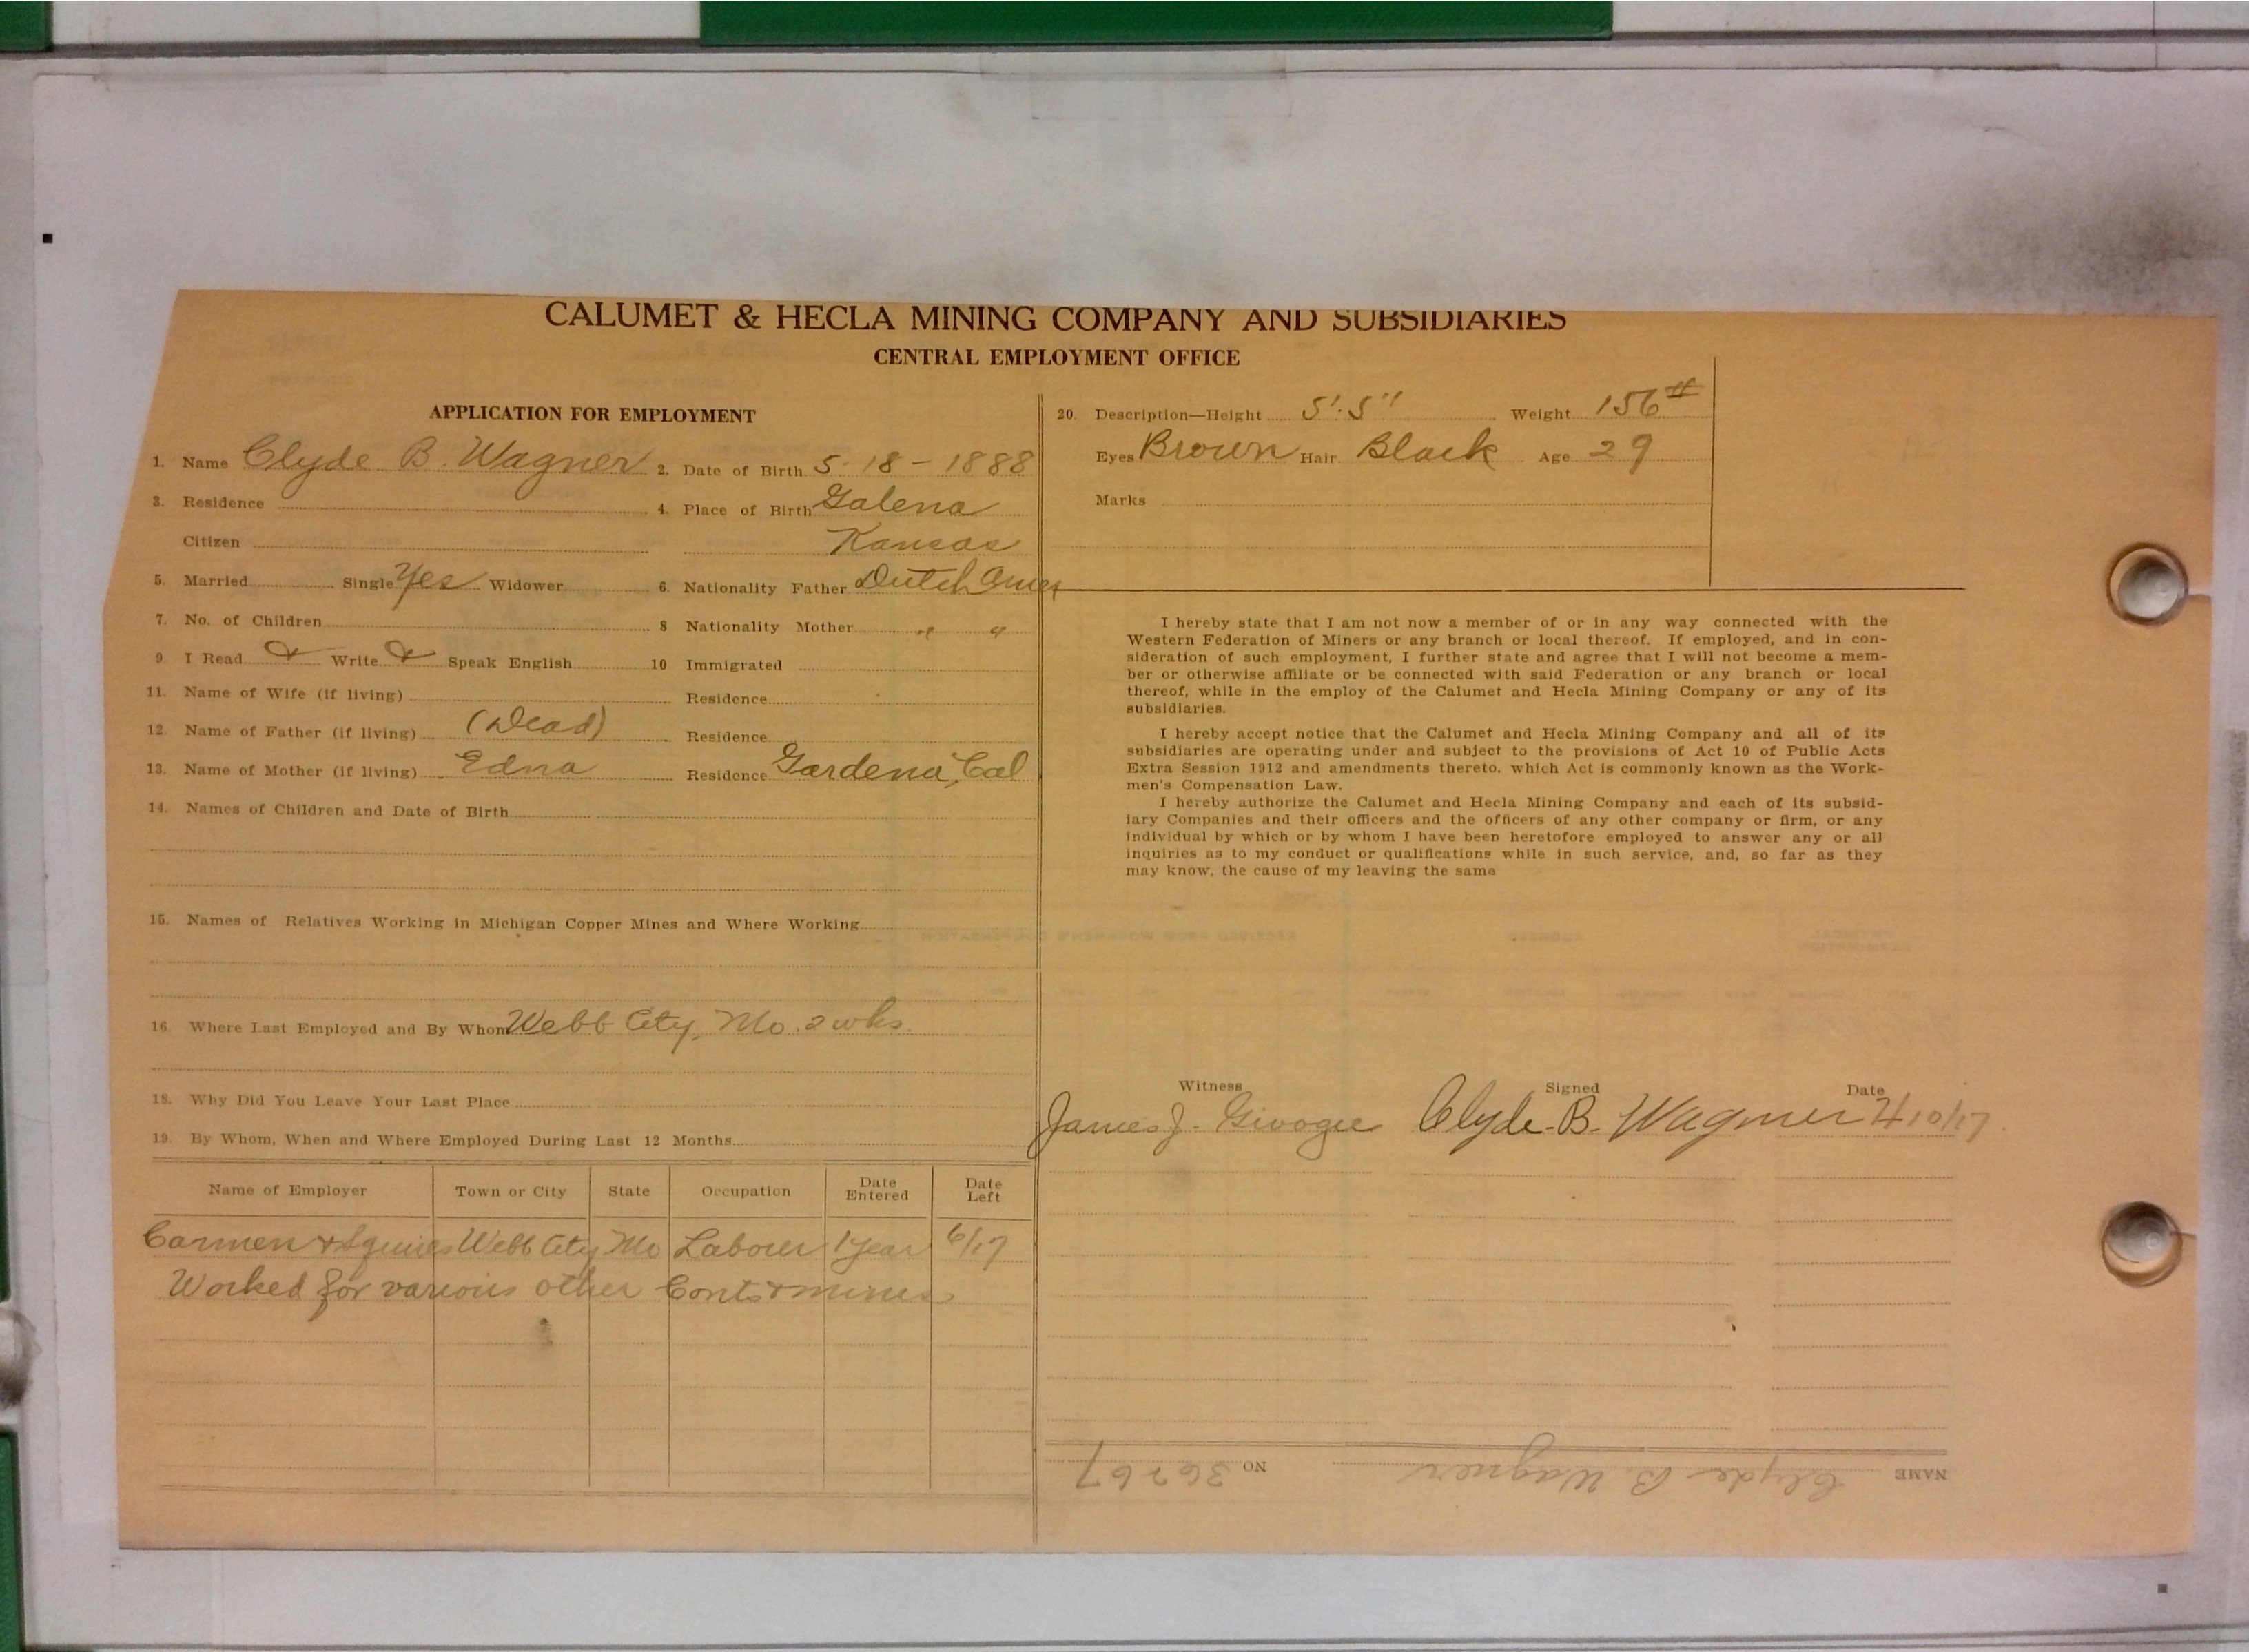 CALUMET & HECLA MINING COMPANY AND SUBSIDIARIES
CENTRAL EMPLOYMENT OFFICE
APPLICATION FOR EMPLOYMENT
1. Name Clyde B. Wagner 2. Date of Birth 5-18-1888
3. Residence 4. Place of Birth Galena
Citizen Kansas
5. Married Single Yes Widower 6. Nationality Father Dutch Amer
7. No. of Children 8 Nationality Mother " "
9 I Read Write Speak English 10 Immigrated
11. Name of Wife (if living) Residence
12. Name of Father (if living) (Dead) Residence
13. Name of Mother (if living) Edna Residence Gardena, Cal
14. Names of Children and Date of Birth
15. Names of Relatives Working in Michigan Copper Mines and Where Working
16. Where Last Employed and By Whom Webb City, Mo. 2 wks.
18. Why Did You Leave Your Last Place
19. By Whom, When and Where Employed During Last 12 Months
Name of Employer Town or City State Occupation Date Entered Date Left
Carmen & Squires Webb City Mo Laborer 1 year 6/17
Worked for various other Conts & mines
20. Description—Height 5'.5" Weight 156#
Eyes Brown Hair Black Age 29
Marks
I hereby state that I am not now a member of or in any way connected with the
Western Federation of Miners or any branch or local thereof. If employed, and in con-
sideration of such employment, I further state and agree that I will not become a mem-
ber or otherwise affiliate or be connected with said Federation or any branch or local
thereof, while in the employ of the Calumet and Hecla Mining Company or any of its
subsidiaries.
I hereby accept notice that the Calumet and Hecla Mining Company and all of its
subsidiaries are operating under and subject to the provisions of Act 10 of Public Acts
Extra Session 1912 and amendments thereto, which Act is commonly known as the Work-
men's Compensation Law.
I hereby authorize the Calumet and Hecla Mining Company and each of its subsid-
iary Companies and their officers and the officers of any other company or firm, or any
individual by which or by whom I have been heretofore employed to answer any or all
inquiries as to my conduct or qualifications while in such service, and, so far as they
may know, the cause of my leaving the same
Witness Signed Date
James J. Clyde B. Wagner
NAME Clyde B. Wagner NO 36767